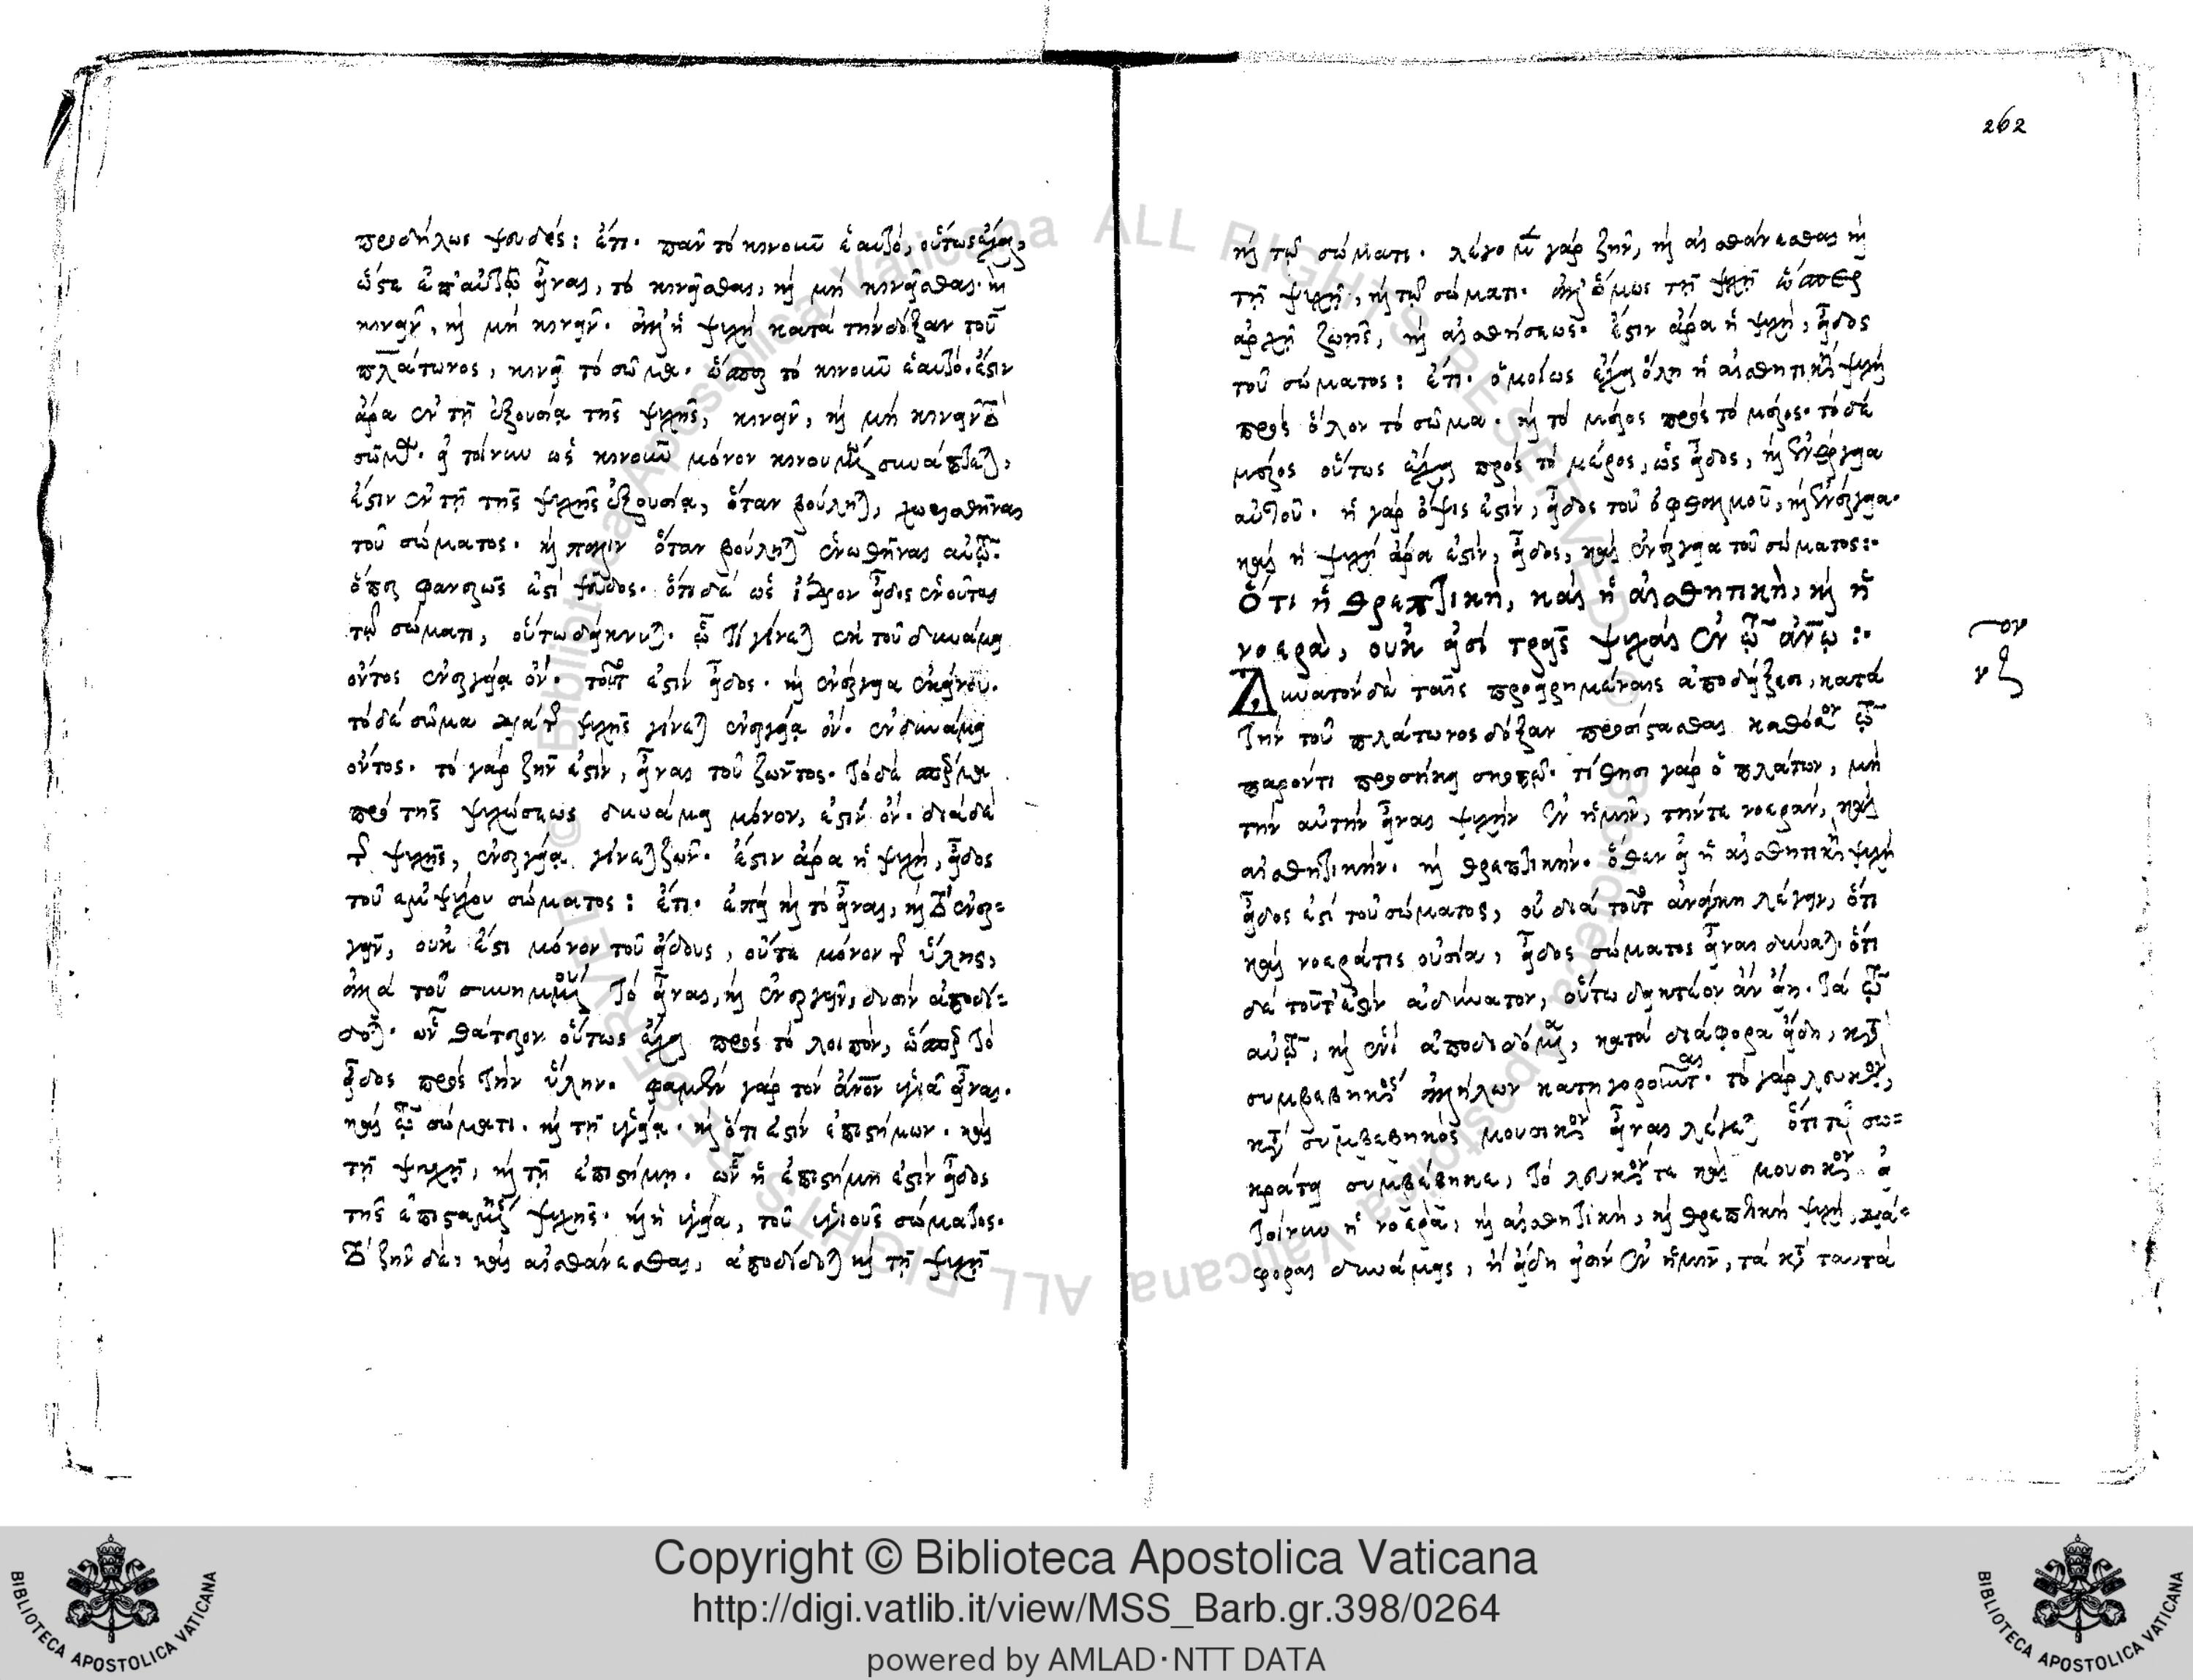 προδήλως ψευδές: ἔτι. πᾶν τὸ κινοῦν ἑαυτό, οὕτως ἔχει,
ὥστε ἐπ' αὐτῷ εἶναι, τὸ κινεῖσθαι, καὶ μὴ κινεῖσθαι. καὶ
κινεῖν, καὶ μὴ κινεῖν. ἀλλ' ἡ ψυχὴ κατὰ τὴν δόξαν τοῦ
πλάτωνος, κινεῖ τὸ σῶμα. ὥσπερ τὸ κινοῦν ἑαυτό. ἔστιν
ἄρα ἐν τῇ ἐξουσίᾳ τῆς ψυχῆς, κινεῖν, καὶ μὴ κινεῖν τὸ
σῶμα. εἰ τοίνυν ὡς κινοῦν μόνον κινουμένῳ συνάπτεται,
ἔστιν ἐν τῇ τῆς ψυχῆς ἐξουσίᾳ, ὅταν βούληται, χωρισθῆναι
τοῦ σώματος. καὶ πάλιν ὅταν βούληται ἑνωθῆναι αὐτῷ.
ὅπερ φανερῶς ἐστὶ ψεῦδος. ὅτι δὲ ὡς ἴδιον εἶδος ἑνοῦται
τῷ σώματι, οὕτω δείκνυται. ᾧ τὶ γίνεται ἐκ τοῦ δυνάμει
ὄντος ἐνεργείᾳ ὄν. τοῦτ' ἐστὶν εἶδος. καὶ ἐνέργεια ἐκείνου.
τὸ δὲ σῶμα διὰ τῆς ψυχῆς γίνεται ἐνεργείᾳ ὄν. ἐκ δυνάμει
ὄντος. τὸ γὰρ ζῆν ἐστὶν, εἶναι τοῦ ζῶντος. τὸ δὲ σπέρμα
πρὸ τῆς ψυχώσεως δυνάμει μόνον, ἐστὶν ὄν. διὰ δὲ
τῆς ψυχῆς, ἐνεργείᾳ γίνεται ζῶν. ἔστιν ἄρα ἡ ψυχὴ, εἶδος
τοῦ ἐμψύχου σώματος: ἔτι. ἐπεὶ καὶ τὸ εἶναι, καὶ τὸ ἐνερ-
γεῖν, οὐκ ἔστι μόνον τοῦ εἴδους, οὔτε μόνον τῆς ὕλης,
ἀλλὰ τοῦ συνημμένου τὸ εἶναι, καὶ ἐνεργεῖν, δυσὶν ἀποδί-
δοται. ὧν θάτερον οὕτως ἔχει πρὸς τὸ λοιπὸν, ὥσπερ τὸ
εἶδος πρὸς τὴν ὕλην. φαμὲν γὰρ τὸν ἄνθρωπον ὑγιᾶ εἶναι.
καὶ τῷ σώματι. καὶ τῇ ὑγείᾳ. καὶ ὅτι ἐστὶν ἐπιστήμων. καὶ
τῇ ψυχῇ, καὶ τῇ ἐπιστήμῃ. ὧν ἡ ἐπιστήμη ἐστὶν εἶδος
τῆς ἐπισταμένης ψυχῆς. καὶ ἡ ὑγεία, τοῦ ὑγιοῦς σώματος.
τὸ ζῆν δὲ, καὶ αἰσθάνεσθαι, ἀποδίδοται καὶ τῇ ψυχῇ
262
καὶ τῷ σώματι. λέγομεν γὰρ ζῆν, καὶ αἰσθάνεσθαι καὶ
τῇ ψυχῇ, καὶ τῷ σώματι. ἀλλ' ὅμως τῇ ψυχῇ ὥσπερ
ἀρχῇ ζωῆς, καὶ αἰσθήσεως. ἔστιν ἄρα ἡ ψυχὴ, εἶδος
τοῦ σώματος: ἔτι. ὁμοίως ἔχει ὅλη ἡ αἰσθητικὴ ψυχὴ
πρὸς ὅλον τὸ σῶμα. καὶ τὸ μέρος πρὸς τὸ μέρος. τὸ δὲ
μέρος οὕτως ἔχει πρὸς τὸ μέρος, ὡς εἶδος, καὶ ἐνέργεια
αὐτοῦ. ἡ γὰρ ὄψις ἐστὶν, εἶδος τοῦ ὀφθαλμοῦ, καὶ ἐνέργεια.
καὶ ἡ ψυχὴ ἄρα ἐστὶν, εἶδος, καὶ ἐνέργεια τοῦ σώματος:.
Ὅτι ἡ θρεπτικὴ, καὶ ἡ αἰσθητικὴ, καὶ ἡ
νοερὰ, οὐκ εἰσὶ τρεῖς ψυχαὶ ἐν τῷ ἀνθρώπῳ:.
Δυνατὸν δὲ ταῖς προειρημέναις ἀποδείξεσι, κατὰ
τὴν τοῦ πλάτωνος δόξαν προΐστασθαι καθόσον τῷ
παρόντι προσήκει σκοπῷ. τίθησι γὰρ ὁ πλάτων, μὴ
τὴν αὐτὴν εἶναι ψυχὴν ἐν ἡμῖν, τήν τε νοερὰν, καὶ
αἰσθητικήν. καὶ θρεπτικήν. ὅθεν εἰ ἡ αἰσθητικὴ ψυχὴ
εἶδος ἐστὶ τοῦ σώματος, οὐ διὰ τοῦτ' ἀνάγκη λέγειν, ὅτι
καὶ νοερά τις οὐσία, εἶδος σώματος εἶναι δύναται. ὅτι
δὲ τοῦτ' ἐστὶν ἀδύνατον, οὕτω δεικτέον ἂν εἴη. τὰ τῷ
αὐτῷ, καὶ ἑνὶ ἀποδιδόμενα, κατὰ διάφορα εἴδη, κατὰ
συμβεβηκὸς ἀλλήλων κατηγοροῦνται. τὸ γὰρ λευκὸν,
κατὰ συμβεβηκὸς μουσικὸν εἶναι λέγεται ὅτι τῷ σω-
κράτει συμβέβηκε, τὸ λευκόν τε καὶ μουσικόν. εἰ
τοίνυν ἡ νοερὰ, καὶ αἰσθητικὴ, καὶ θρεπτικὴ ψυχὴ, διά-
φοραι δυνάμεις, ἢ εἴδη εἰσὶν ἐν ἡμῖν, τὰ κατὰ ταυτὰ
νζ
Copyright © Biblioteca Apostolica Vaticana
http://digi.vatlib.it/view/MSS_Barb.gr.398/0264
powered by AMLAD·NTT DATA
BIBLIOTECA APOSTOLICA VATICANA
BIBLIOTECA APOSTOLICA VATICANA